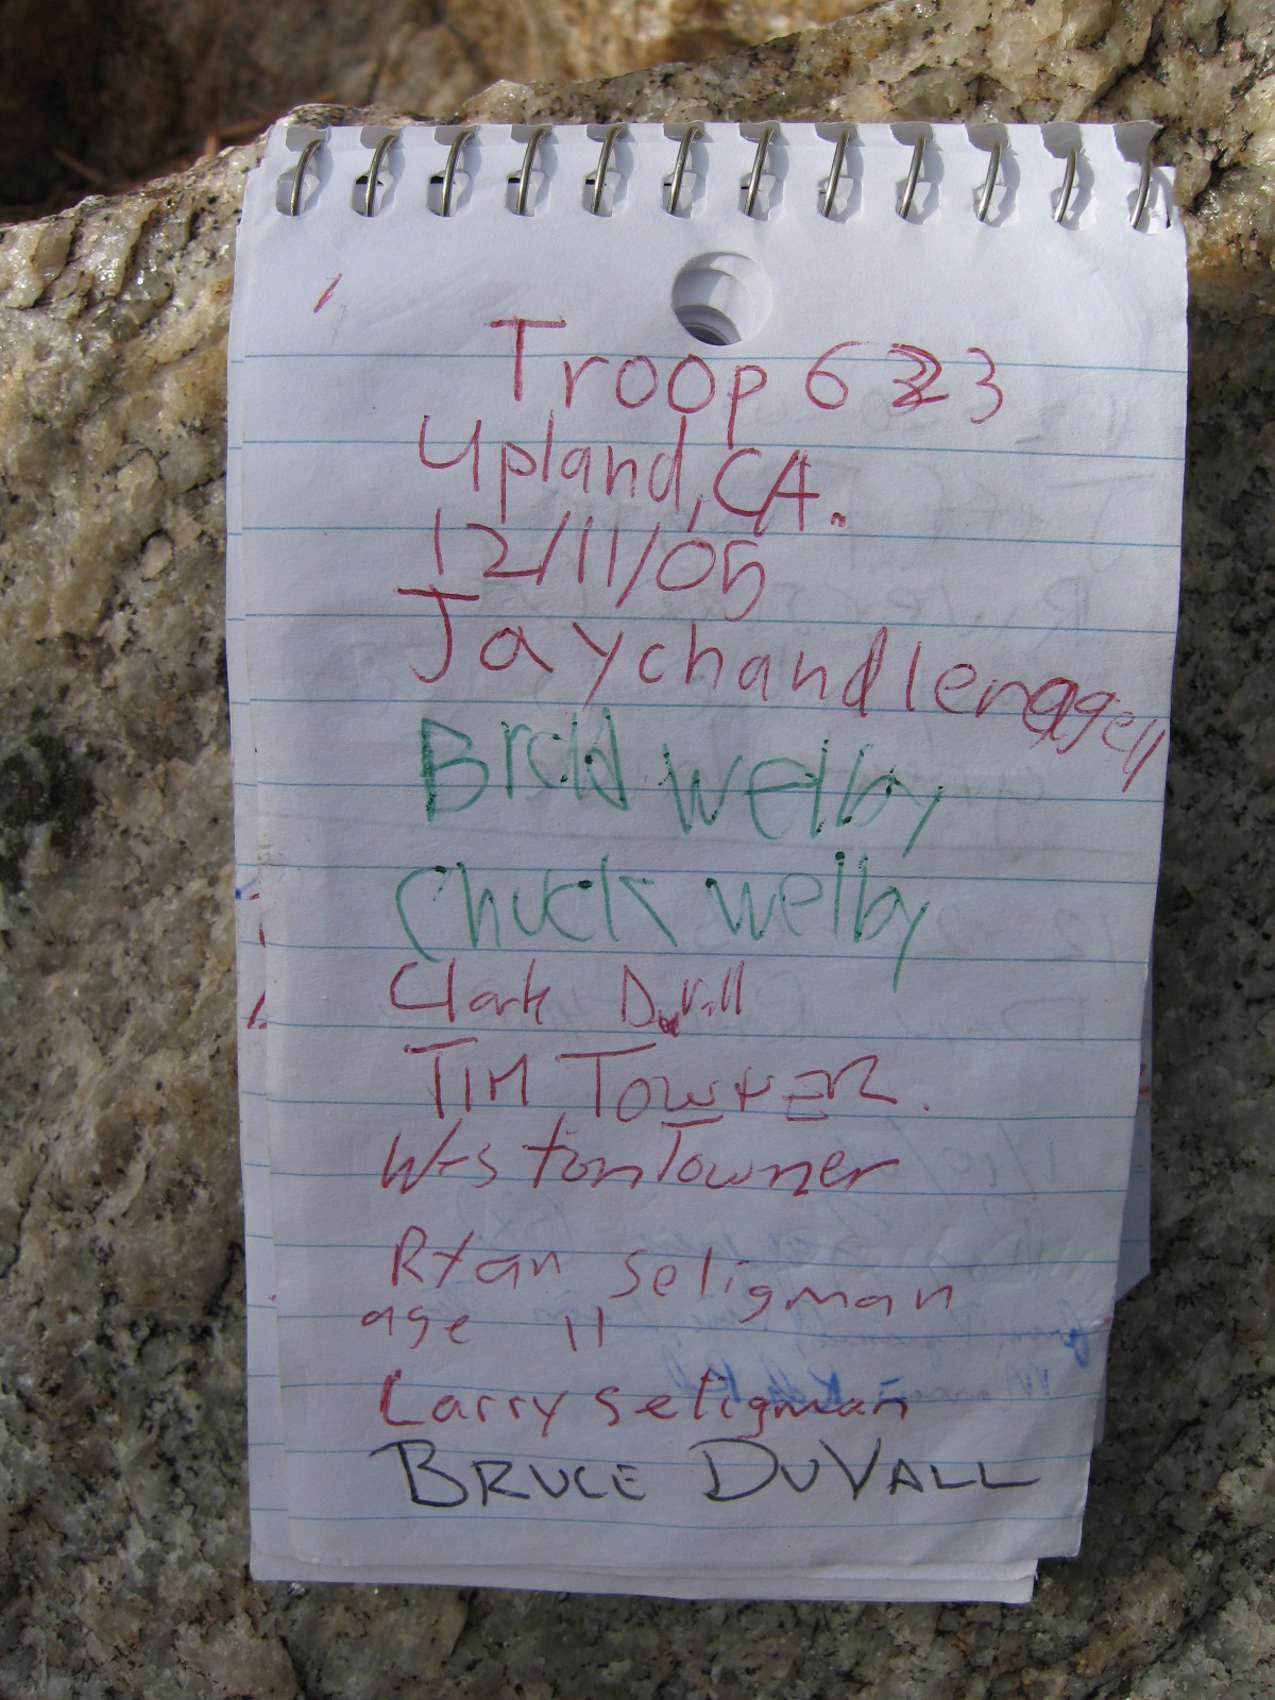 Troop 623
Upland, CA.
12/11/05
Jay chandler age 11
Brad Welby
Chuck Welby
Clark Duvall
TIM TOWNER.
Weston Towner
Ryan Seligman
age 11
Larry Seligman
BRUCE DUVALL